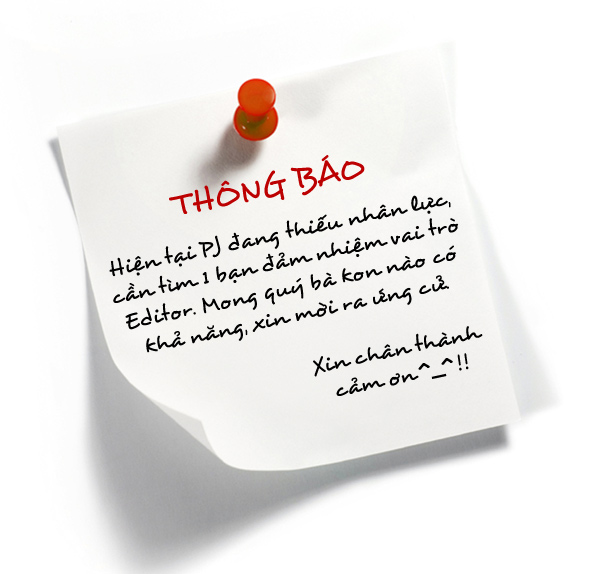 THÔNG BÁO
Hiện tại PJ đang thiếu nhân lực,
cần tìm 1 bạn đảm nhiệm vai trò
Editor. Mong quý bà kon nào có
khả năng, xin mời ra ứng cử.
Xin chân thành
cảm ơn^_^!!